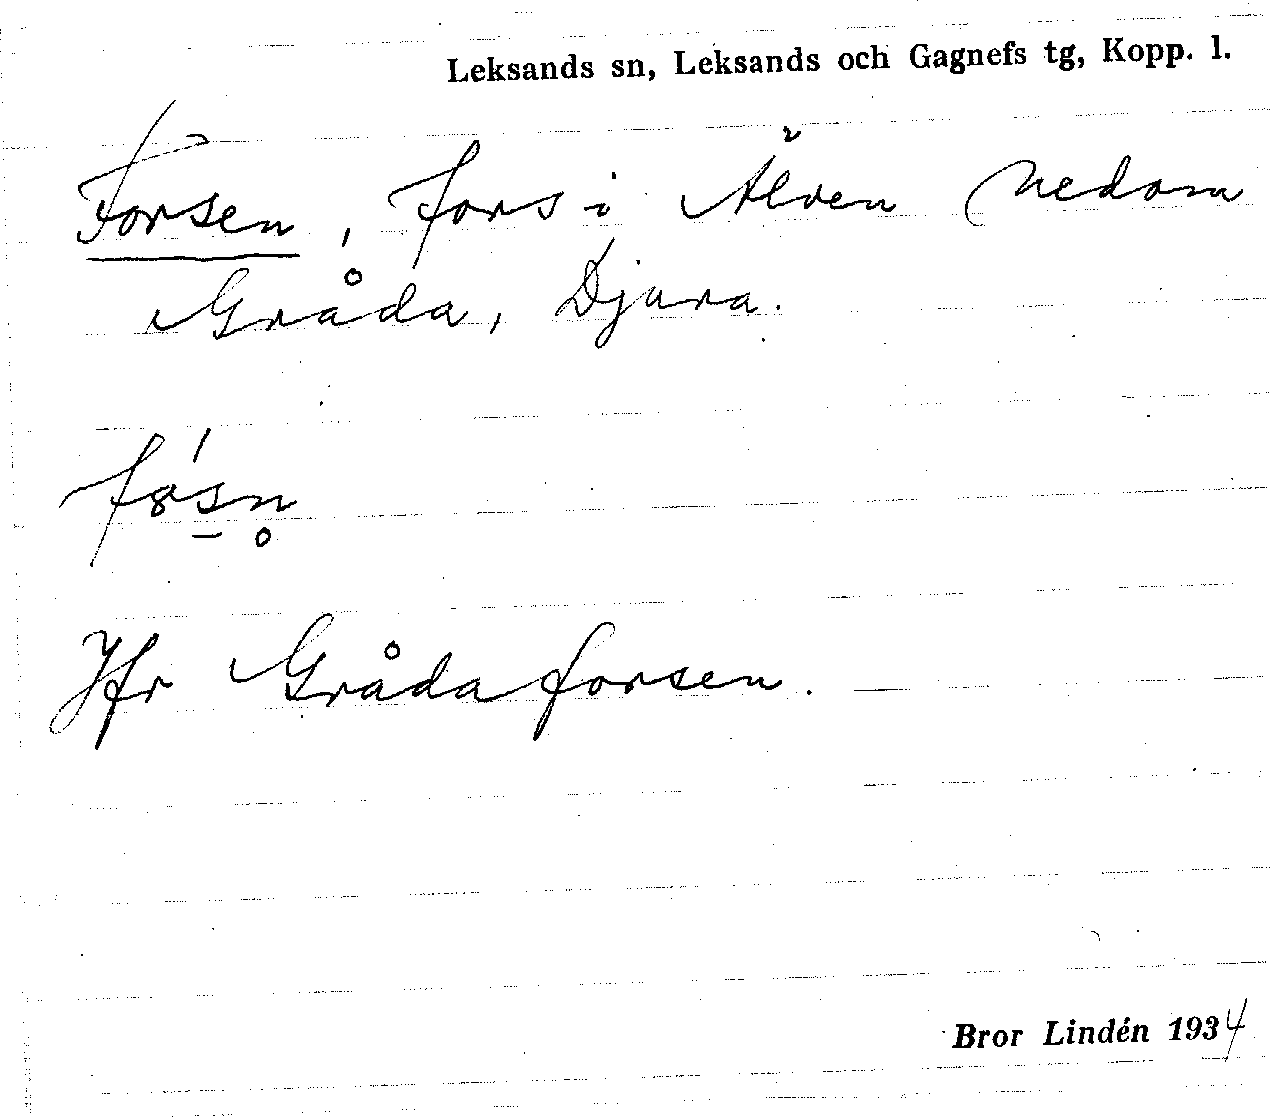 Leksands sn, Leksands och Gagnefs tg, Kopp. l.
Forsen, fors i Älven nedom
Gråda, Djura.
fø̀´s̠n̥
Jfr Grådaforsen.
Bror Lindén 1934